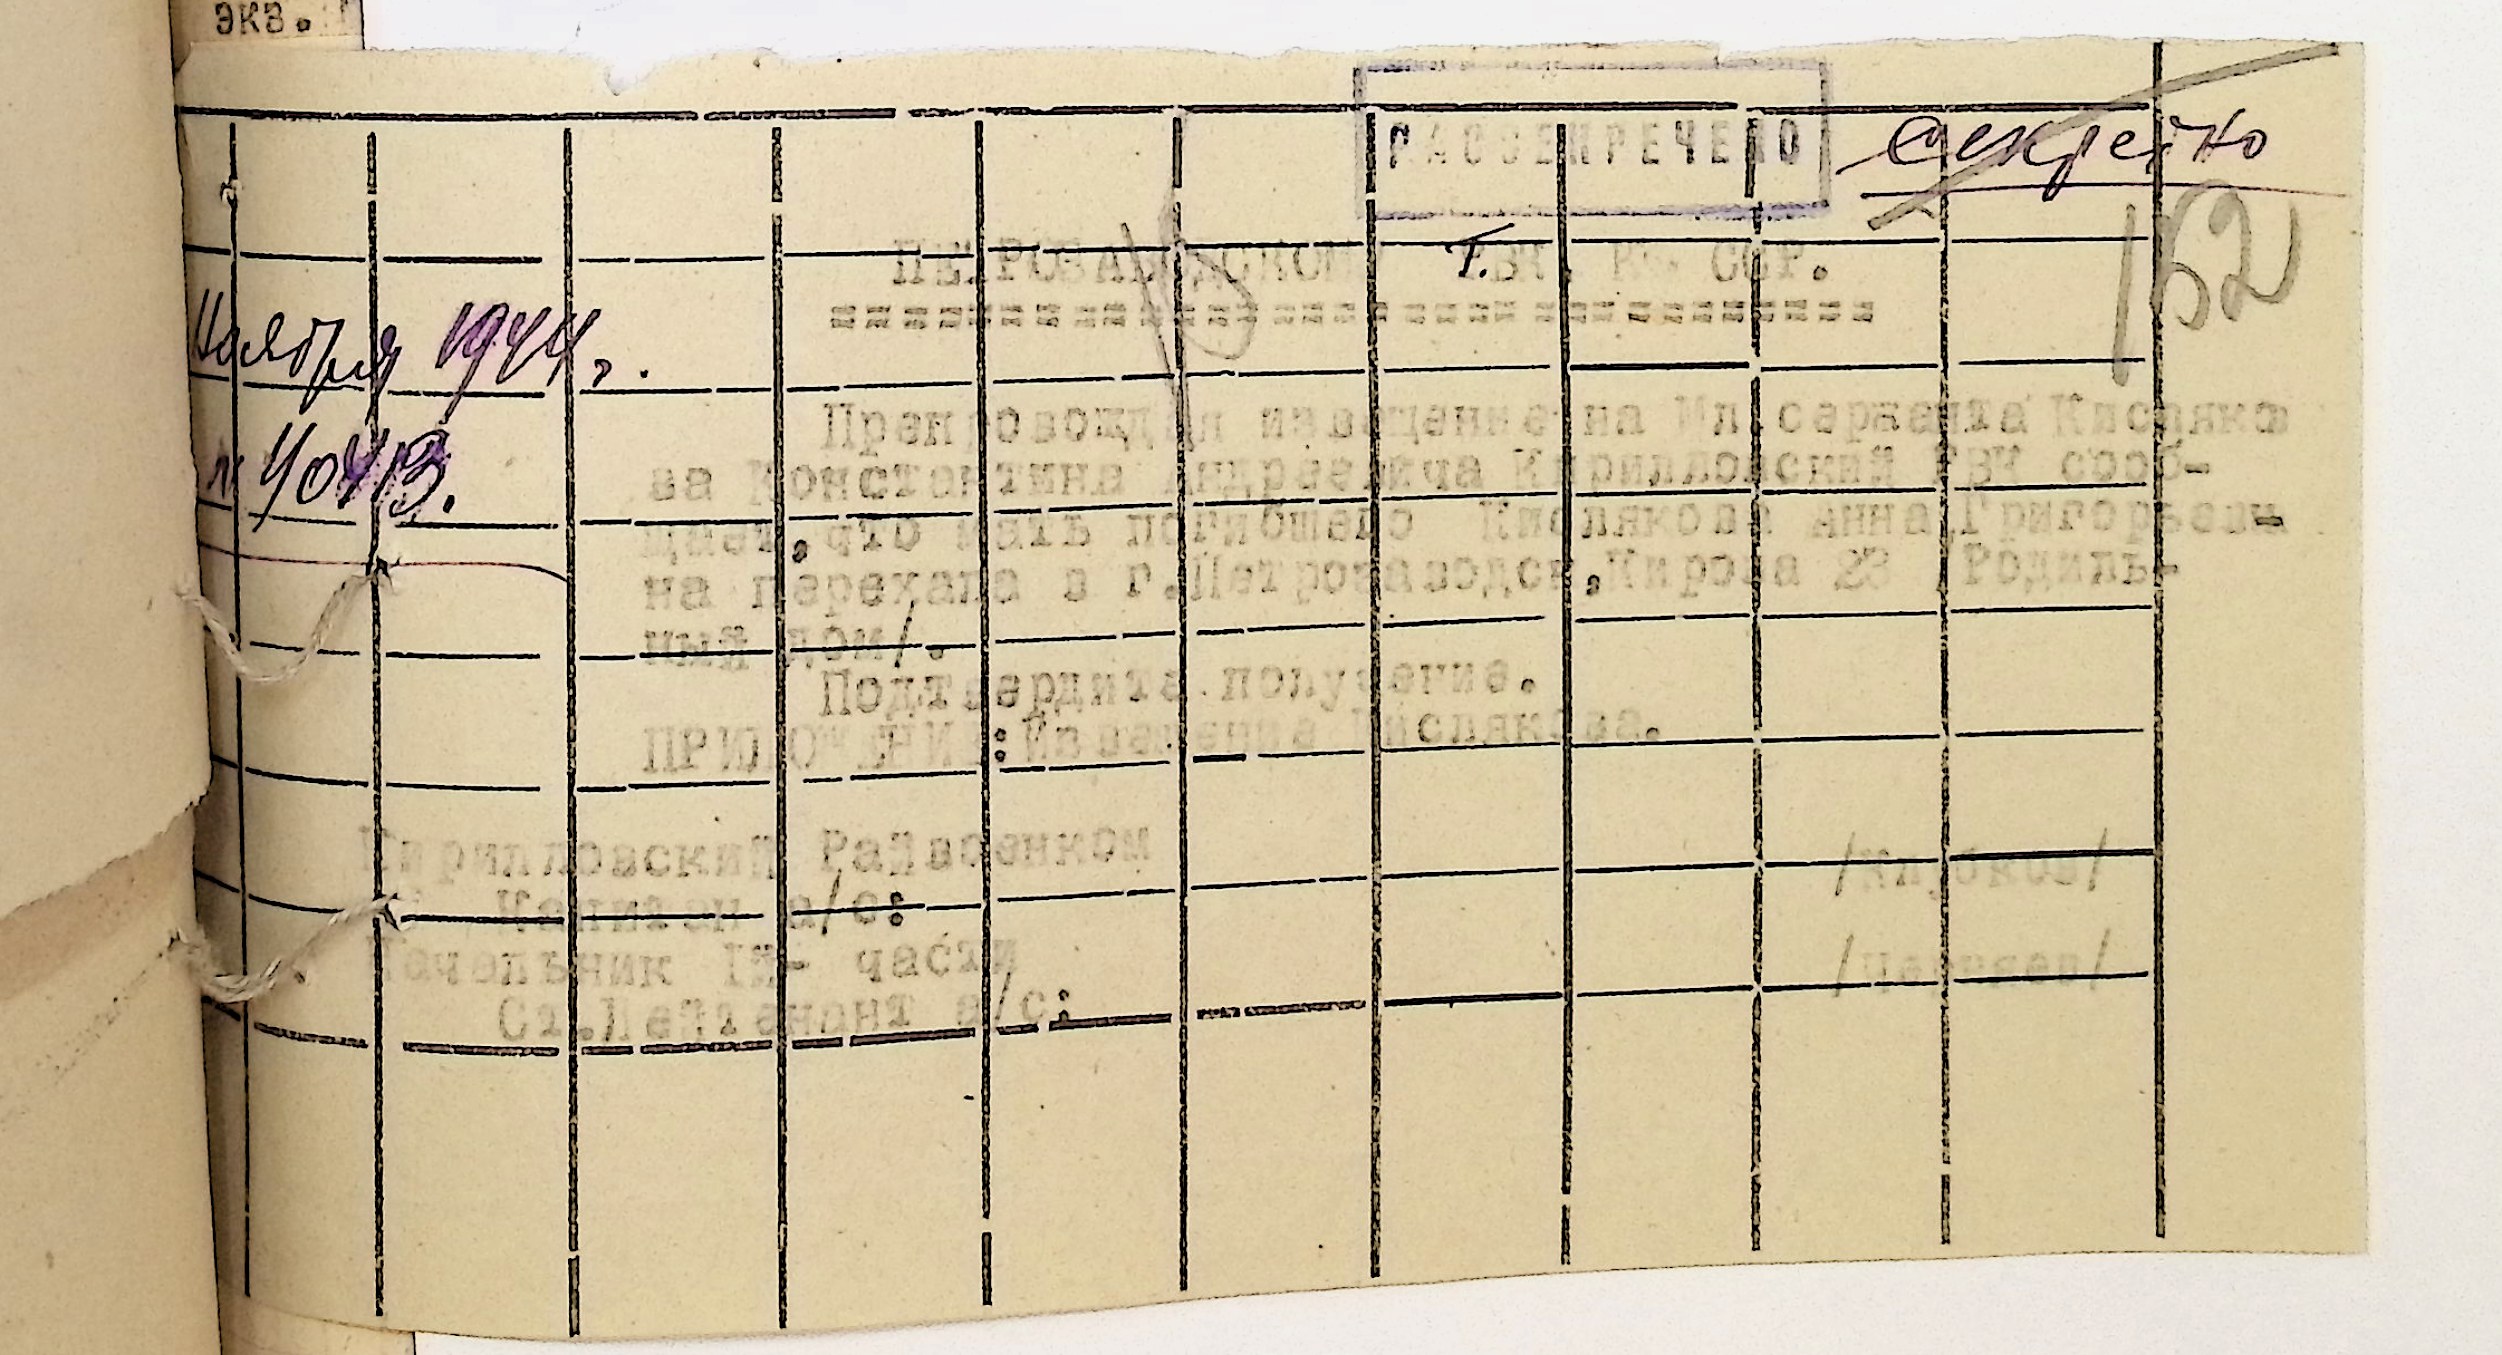 экз.
РАССЕКРЕЧЕНО
секретно
152
ПЕТРОЗАВОДСКОМУ ГВК, КФ. ССР.
Ноября 1944г.
Препровождая извещение на Мл.сержанта Кисляко
№ 4043.
ва Константина Андреевича Кирилловский РВК сооб-
щает,что мать погибшего Кислякова Анна Григорьев-
на переехала в г.Петрозаводск,Кирова 23 /Родиль-
ный дом/.
Подтвердите получение.
ПРИЛОЖЕНИЕ:Извещение Кислякова.
Кирилловский Райвоенком
Капитан а/с: /Клубков/
Начальник части
Ст.Лейтенант а/с: